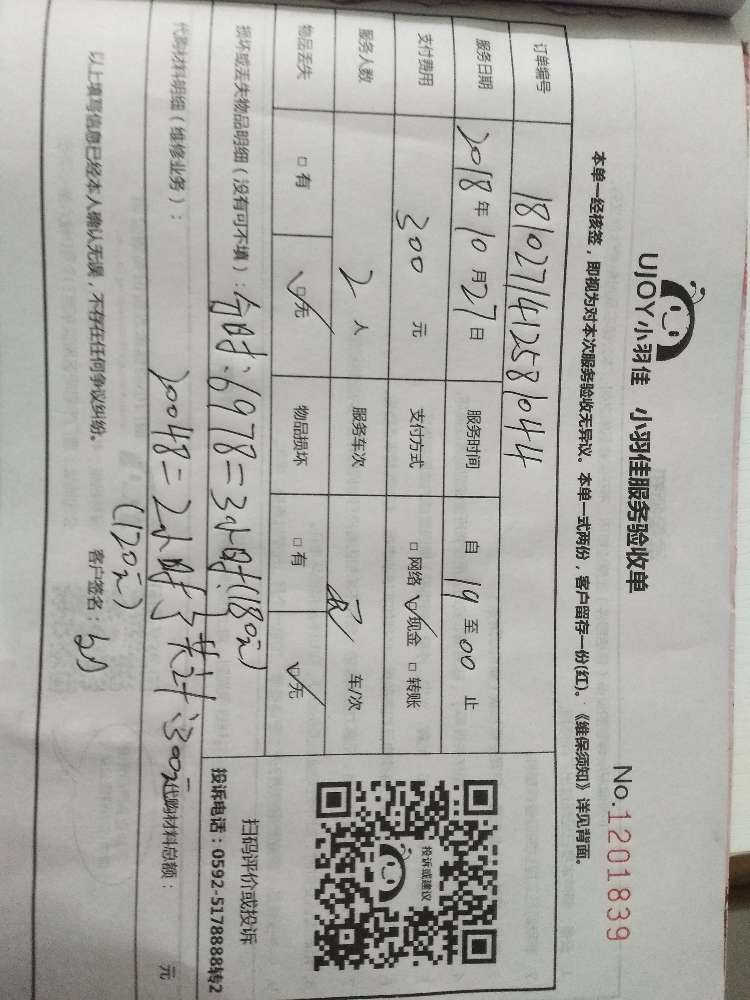 UJOY小羽佳 小羽佳服务验收单
No.1201839
本单一经核签，即视为对本次服务验收无异议。本单一式两份，客户留存一份(红)。《维保须知》详见背面。
订单编号 1810271412581044
服务日期 2018年10月27日 服务时间 自19至00止
支付费用 300元 支付方式 □网络 ☑现金 □转账
服务人数 2人 服务车次 车/次
物品丢失 □有 ☑无 物品损坏 □有 ☑无
损坏或丢失物品明细（没有可不填）：6978=3小时(180元)
代购材料明细（维修业务）：20048=2小时 共计:300元 代购材料总额： 元
(120元)
以上填写信息已经本人确认无误，不存在任何争议纠纷。 客户签名：
投诉或建议
扫码评价或投诉
投诉电话：0592-5178888转2